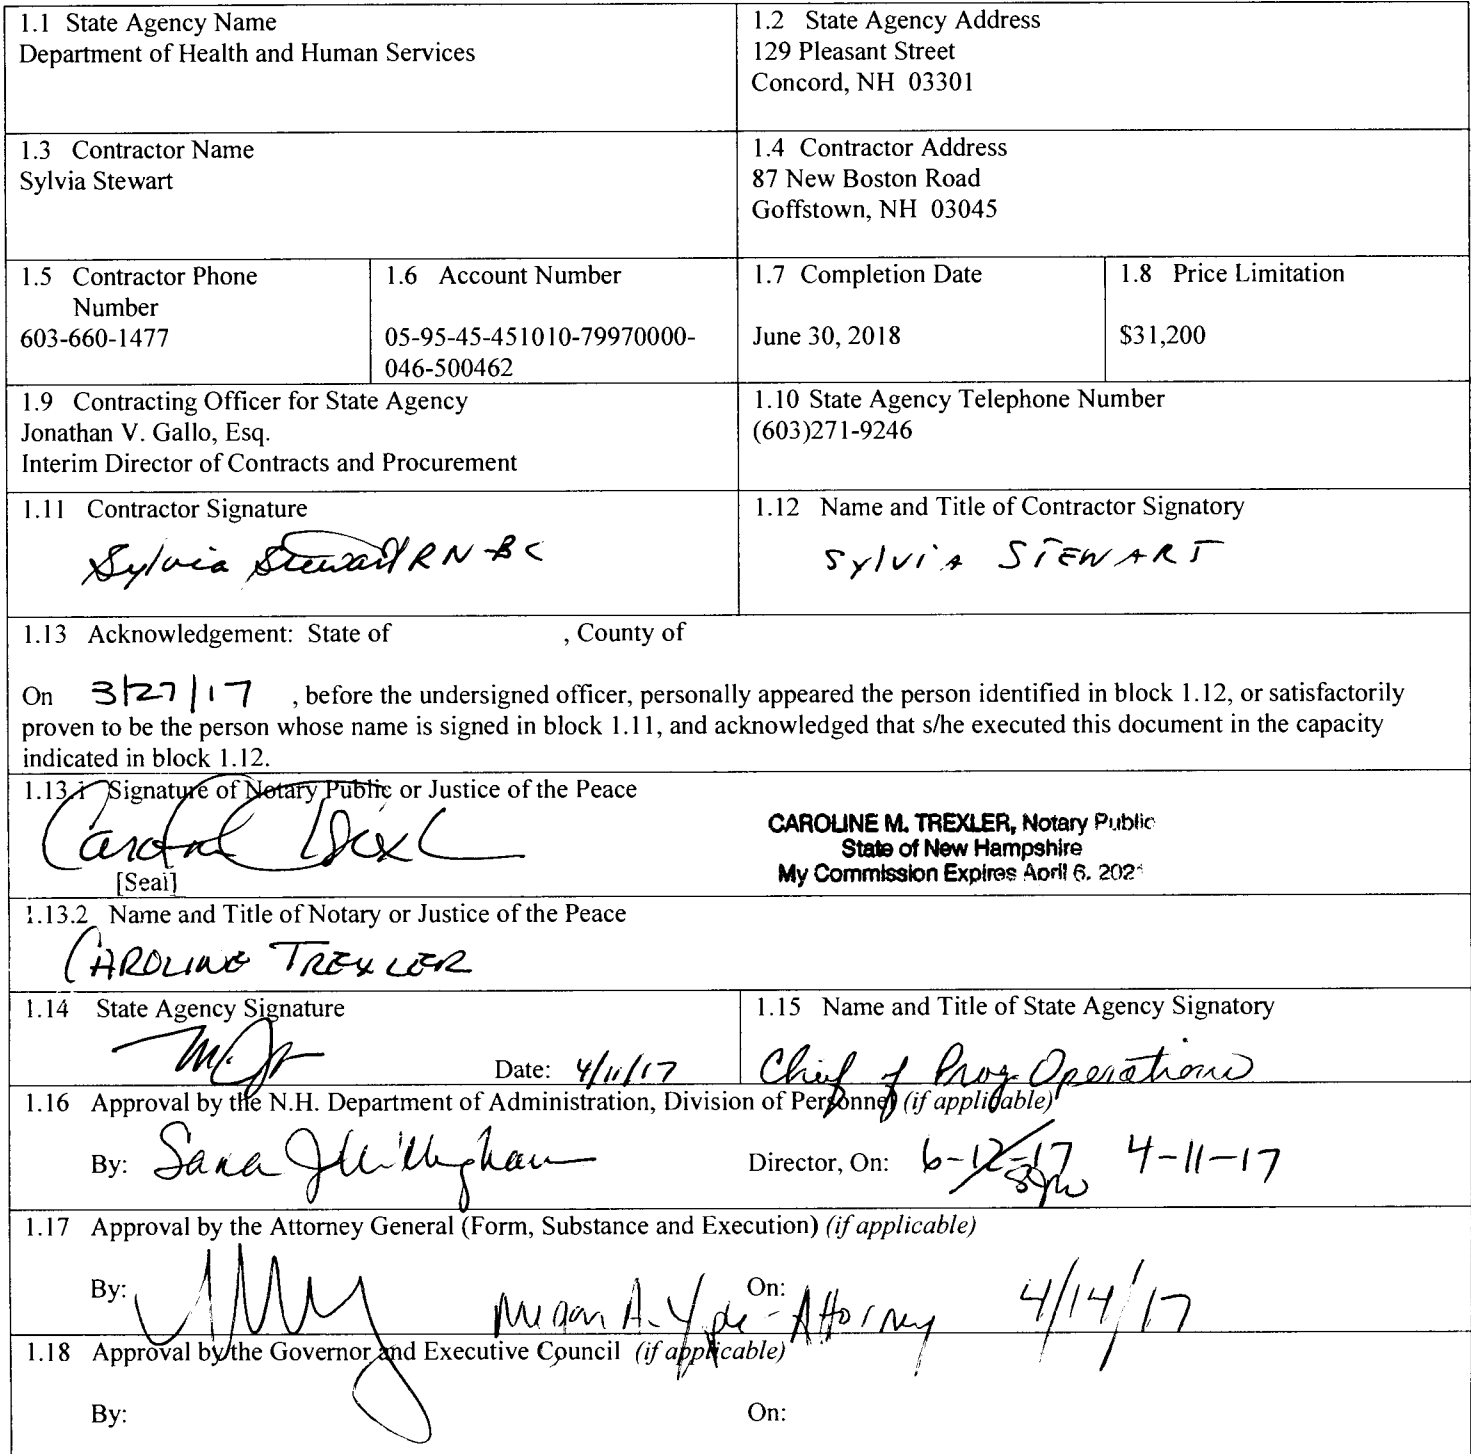 1.1 State Agency Name
Department of Health and Human Services
1.2 State Agency Address
129 Pleasant Street
Concord, NH 03301
1.3 Contractor Name
Sylvia Stewart
1.4 Contractor Address
87 New Boston Road
Goffstown, NH 03045
1.5 Contractor Phone
Number
603-660-1477
1.6 Account Number
05-95-45-451010-79970000-
046-500462
1.7 Completion Date
June 30, 2018
1.8 Price Limitation
$31,200
1.9 Contracting Officer for State Agency
Jonathan V. Gallo, Esq.
Interim Director of Contracts and Procurement
1.10 State Agency Telephone Number
(603)271-9246
1.11 Contractor Signature
Sylvia Stewart RN-BC
1.12 Name and Title of Contractor Signatory
Sylvia STEWART
1.13 Acknowledgement: State of , County of
On 3/27/17 , before the undersigned officer, personally appeared the person identified in block 1.12, or satisfactorily
proven to be the person whose name is signed in block 1.11, and acknowledged that s/he executed this document in the capacity
indicated in block 1.12.
1.13.1 Signature of Notary Public or Justice of the Peace
[Seal]
CAROLINE M. TREXLER, Notary Public
State of New Hampshire
My Commission Expires April 6, 2021
1.13.2 Name and Title of Notary or Justice of the Peace
CAROLINE TREXLER
1.14 State Agency Signature
Date: 4/11/17
1.15 Name and Title of State Agency Signatory
Chief of Prog Operations
1.16 Approval by the N.H. Department of Administration, Division of Personnel (if applicable)
By: Sara J Willingham Director, On: 6-12-17 4-11-17
1.17 Approval by the Attorney General (Form, Substance and Execution) (if applicable)
By: Megan A. - Attorney On: 4/14/17
1.18 Approval by the Governor and Executive Council (if applicable)
By: On: